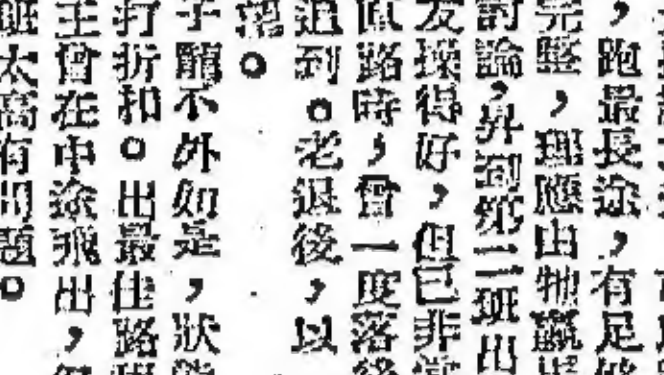 ，跑最長途，有足
完整，理應由牠贏
討論，昇到第二班出
友操得好，但已非
直路時，曾一度落
追到。老退後，以
。
子龍不外如是，狀
打折扣。出最佳路
主曾在中途飛出，
班太高有問題。